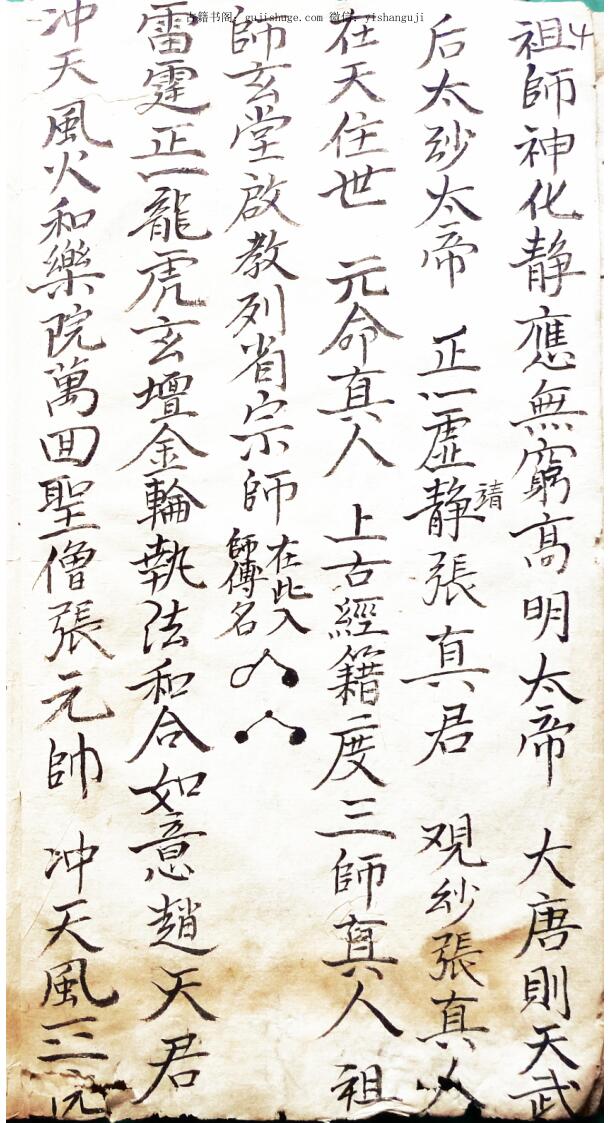 古籍书阁：gujishuge.com 微信：yishanguji
4
祖師神化静應無窮高明太帝 大唐則天武
后太紗太帝 正一虛静張真君 观紗張真人
靖
在天住世 元命真人 上古經籍度三師真人 祖
師玄堂啟教列省宗師 在此入
師傅名
雷霆正一龍虎玄壇金輪執法和合如意趙天君
冲天風火和樂院萬回聖僧張元帥 冲天風三